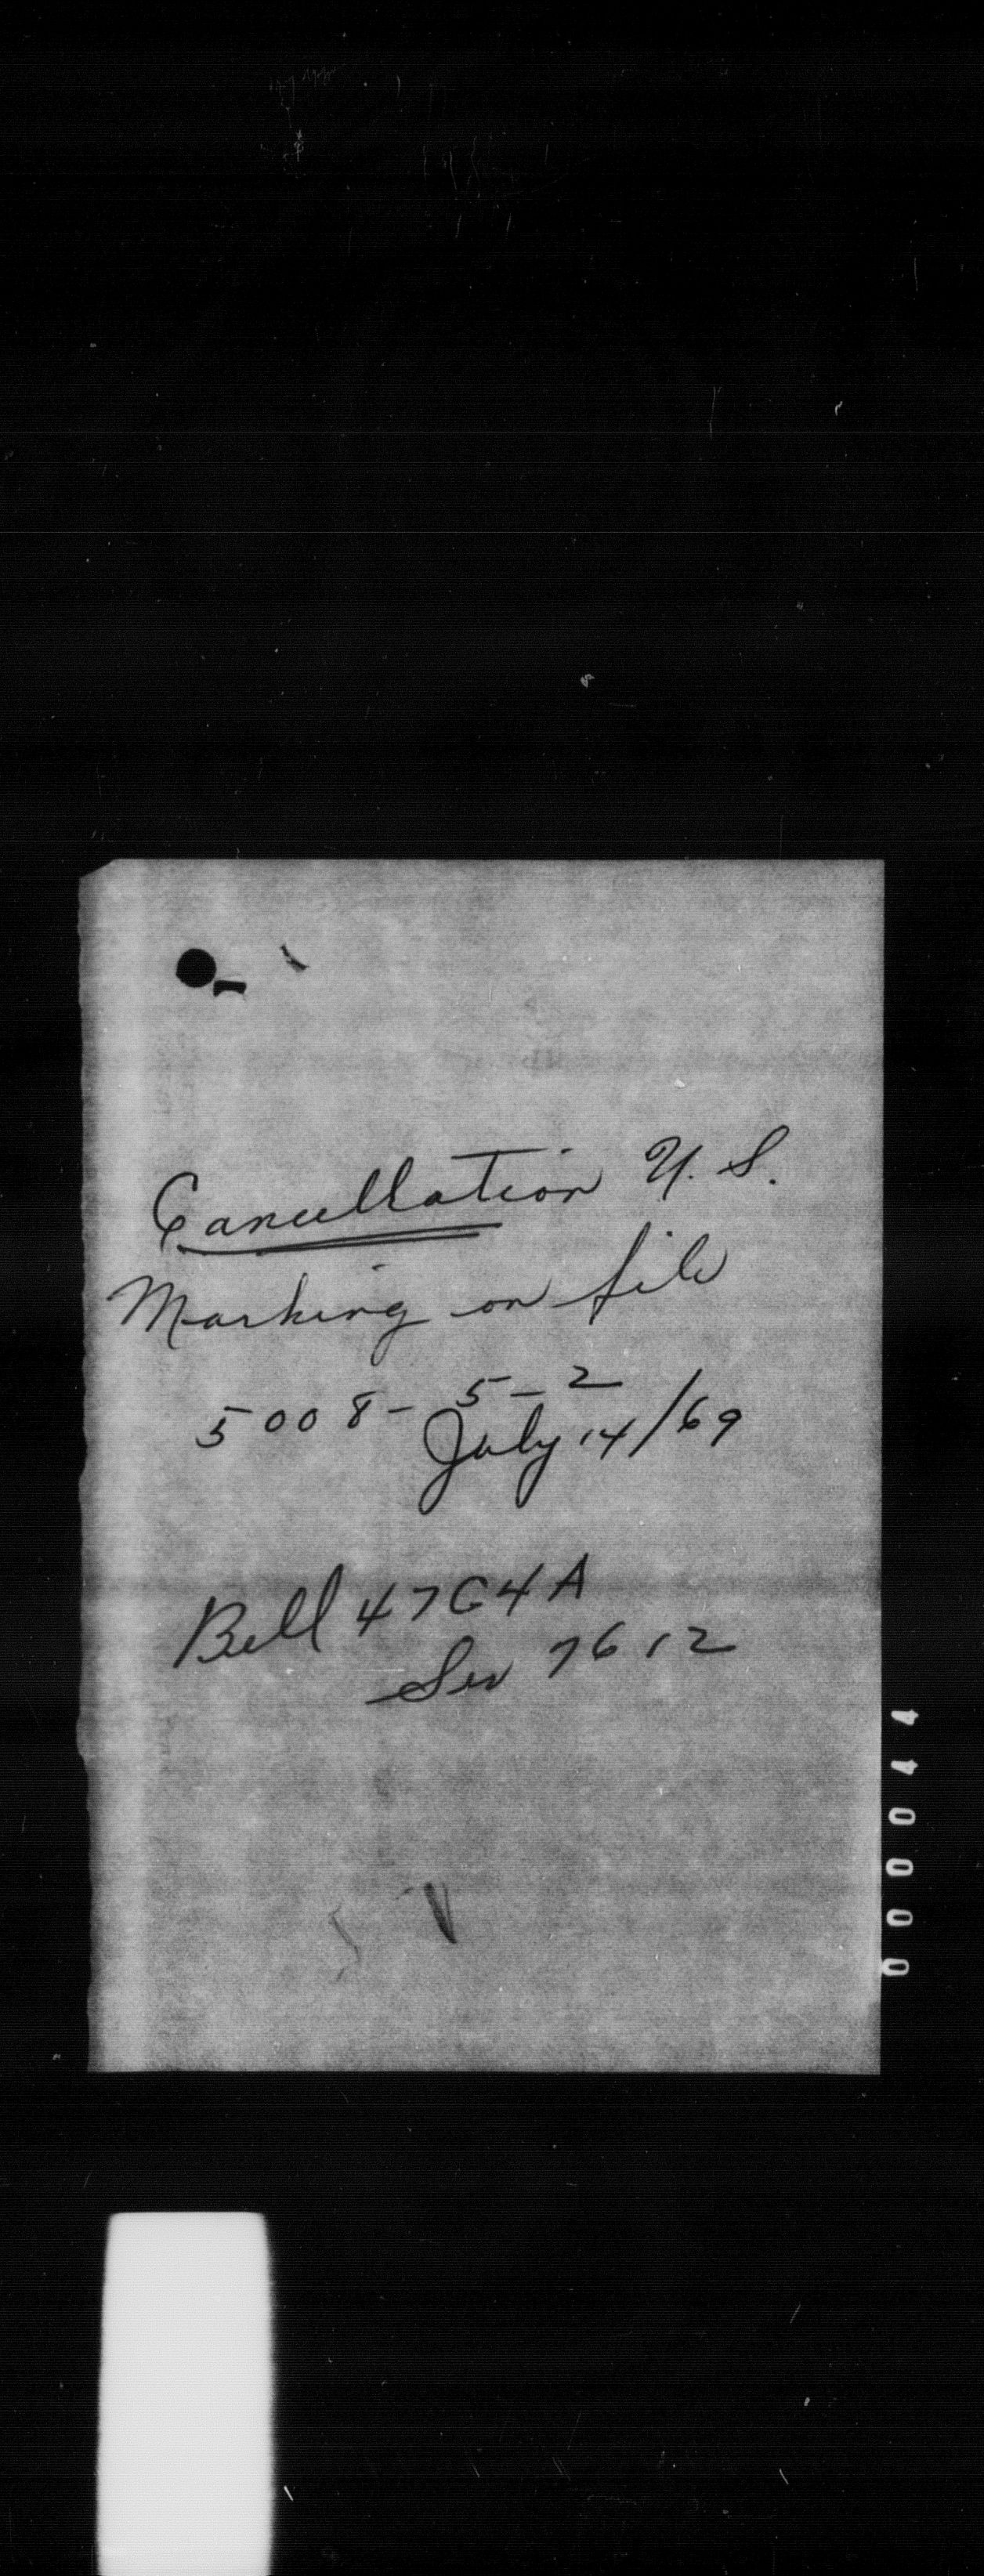 Cancellation U.S.
Marking on file
5008-5-2
July 14/69
Bell 47G4A
Ser 7612
000044